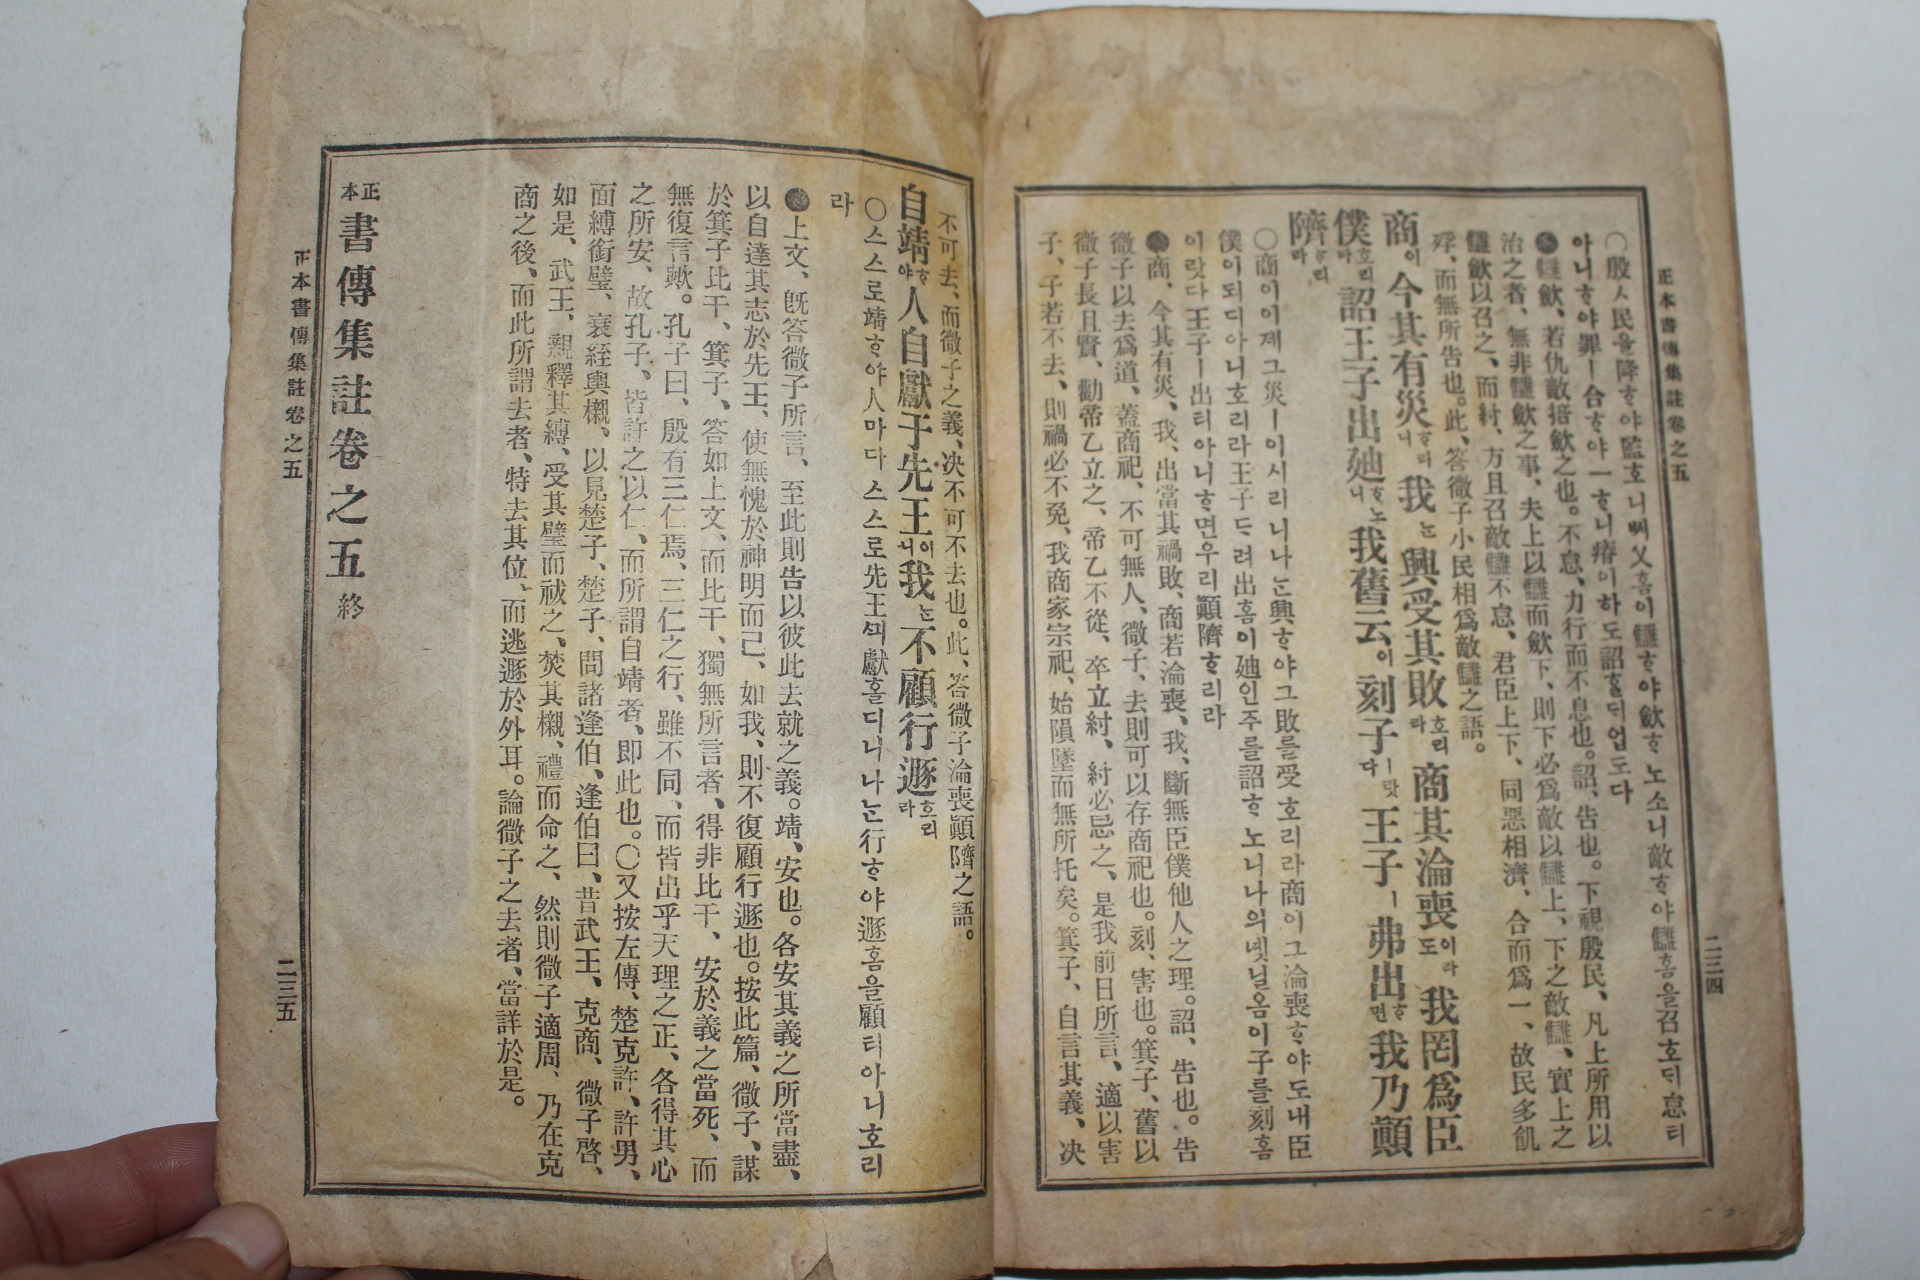 正本書傳集註卷之五
二三四
○殷ㅅ民을降ᄒᆞ야監호니ᄡᅥ乂홈이讎ᄒᆞ야斂ᄒᆞ노소니敵ᄒᆞ야讎홈을召호ᄃᆡ怠티
아니ᄒᆞ야罪ㅣ合ᄒᆞ야一ᄒᆞ니瘠이하도詔ᄒᆞᆯᄃᆡ업도다
讎斂、若仇敵掊斂之也。不怠、力行而不息也。詔、告也。下視殷民、凡上所用以
治之者、無非讎斂之事、夫上以讎而斂下、則下必爲敵以讎上、下之敵讎、實上之
讎斂以召之、而紂、方且召敵讎不怠、君臣上下、同惡相濟、合而爲一、故民多飢
殍、而無所告也。此、答微子小民相爲敵讎之語。
商이今其有災ᄒᆞ리니我ᄂᆞᆫ興受其敗호리라商其淪喪이라도我罔爲臣
僕호리라詔王子出廸ᄒᆞ노니我舊云이刻子ㅣ랏다王子ㅣ弗出ᄒᆞ면我乃顚
隮ᄒᆞ리라
○商이이제그災ㅣ이시리니나ᄂᆞᆫ興ᄒᆞ야그敗를受호리라商이그淪喪ᄒᆞ야도내臣
僕이되디아니호리라王子ᄃᆞ려出홈이廸인주를詔ᄒᆞ노니나의녯닐옴이子를刻홈
이랏다王子ㅣ出티아니ᄒᆞ면우리顚隮ᄒᆞ리라
商、今其有災、我、出當其禍敗、商若淪喪、我、斷無臣僕他人之理。詔、告也。告
微子以去爲道、蓋商祀、不可無人、微子、去則可以存商祀也。刻、害也。箕子、舊以
微子長且賢、勸帝乙立之、帝乙不從、卒立紂、紂必忌之、是我前日所言、適以害
子、子若不去、則禍必不免、我商家宗祀、始隕墜而無所托矣。箕子、自言其義、決
不可去、而微子之義、決不可不去也。此、答微子淪喪顚隮之語。
自靖ᄒᆞ야人自獻于先王이니我ᄂᆞᆫ不顧行遯호리라
○스스로靖ᄒᆞ야人마다스스로先王ᄭᅴ獻홀디니나ᄂᆞᆫ行ᄒᆞ야遯홈을顧티아니호리
라
上文、旣答微子所言、至此則告以彼此去就之義。靖、安也。各安其義之所當盡、
以自達其志於先王、使無愧於神明而已、如我、則不復顧行遯也。按此篇、微子、謀
於箕子比干、箕子、答如上文、而比干、獨無所言者、得非比干、安於義之當死、而
無復言歟。孔子曰、殷有三仁焉、三仁之行、雖不同、而皆出乎天理之正、各得其心
之所安、故孔子、皆許之以仁、而所謂自靖者、卽此也。○又按左傳、楚克許、許男、
面縛銜璧、衰絰輿櫬、以見楚子、楚子、問諸逢伯、逢伯曰、昔武王、克商、微子啓、
如是、武王、親釋其縛、受其璧而祓之、焚其櫬、禮而命之、然則微子適周、乃在克
商之後、而此所謂去者、特去其位、而逃遯於外耳。論微子之去者、當詳於是。
正本 書傳集註卷之五 終
正本書傳集註卷之五
二三五